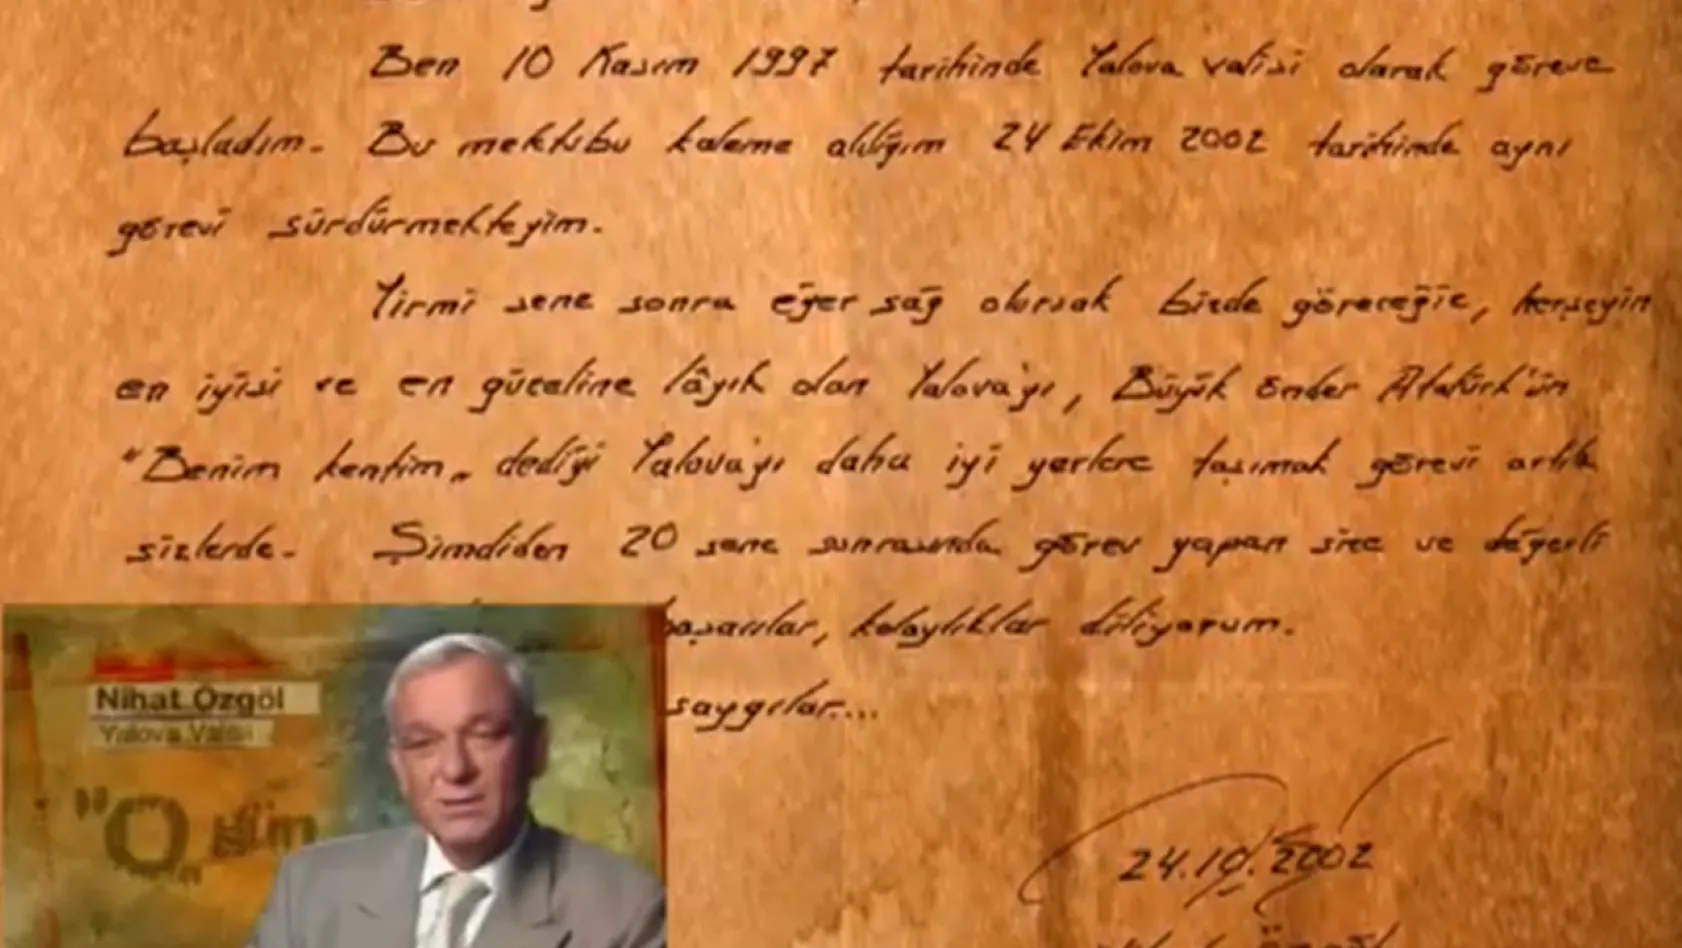 Ben 10 Kasım 1997 tarihinde Yalova valisi olarak göreve
başladım. Bu mektubu kaleme aldığım 24 Ekim 2002 tarihinde aynı
görevi sürdürmekteyim.
Yirmi sene sonra eğer sağ olursak bizde göreceğiz, herşeyin
en iyisi ve en güzeline lâyık olan Yalova'yı, Büyük önder Atatürk'ün
"Benim kentim" dediği Yalova'yı daha iyi yerlere taşımak görevi artık
sizlerde. Şimdiden 20 sene sonrasında görev yapan size ve değerli
başarılar, kolaylıklar diliyorum.
saygılar...
24.10.2002
Nihat Özgöl
Yalova Valisi
"O